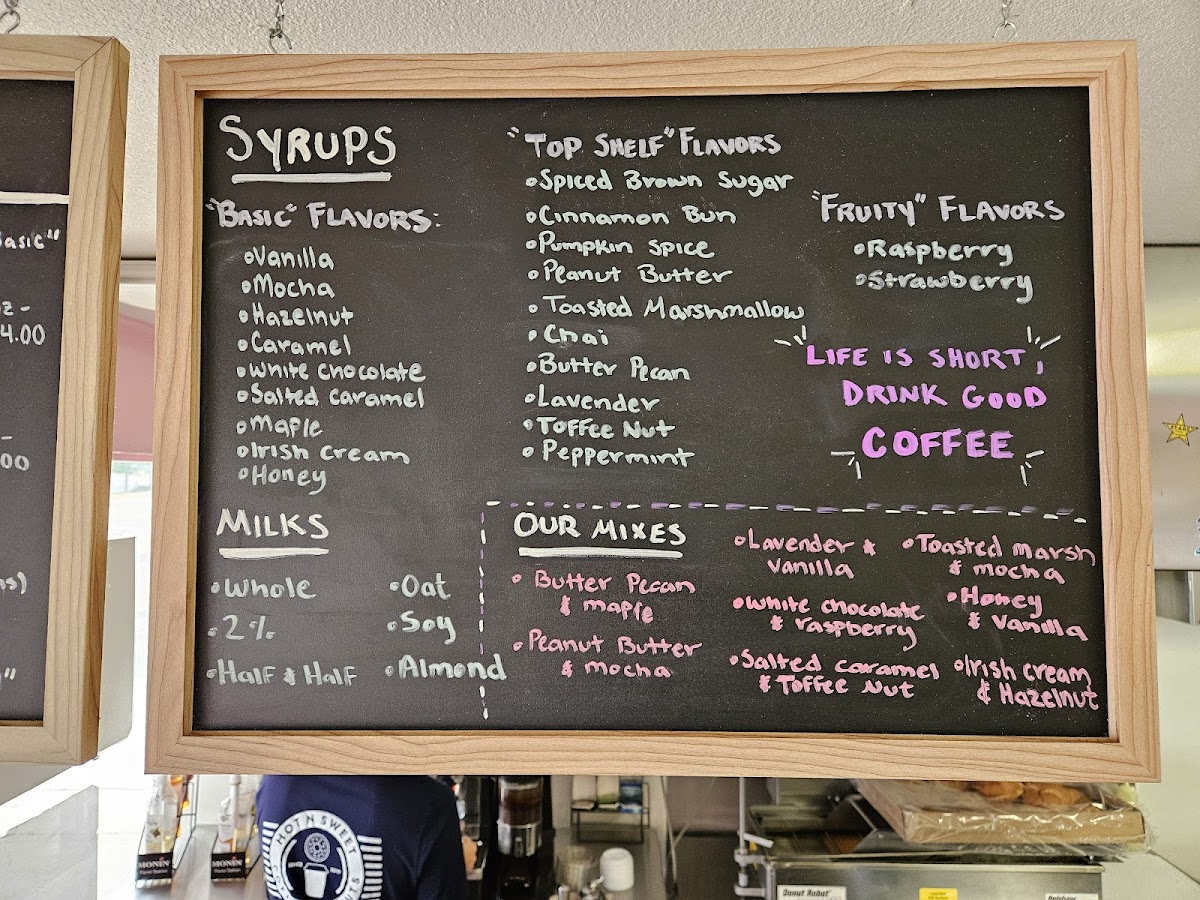 SYRUPS
"BASIC" FLAVORS:
Vanilla
Mocha
Hazelnut
Caramel
White chocolate
Salted caramel
Maple
Irish cream
Honey
MILKS
Whole
2%
Half & Half
Oat
Soy
Almond
"TOP SHELF" FLAVORS
Spiced Brown Sugar
Cinnamon Bun
Pumpkin Spice
Peanut Butter
Toasted Marshmallow
Chai
Butter Pecan
Lavender
Toffee Nut
Peppermint
"FRUITY" FLAVORS
Raspberry
Strawberry
LIFE IS SHORT,
DRINK GOOD
COFFEE
OUR MIXES
Butter Pecan
& maple
Peanut Butter
& mocha
Lavender &
vanilla
White chocolate
& raspberry
Salted caramel
& Toffee Nut
Toasted marsh
& mocha
Honey
& vanilla
Irish cream
& Hazelnut
4.00
HOT N SWEET
MONIN
MONIN
Donut Robot
Belshaw